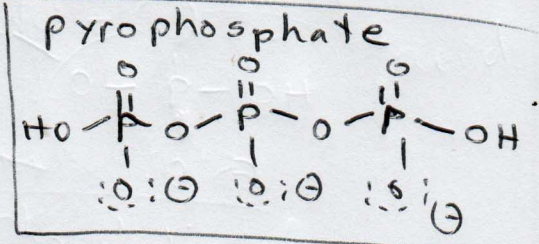 pyrophosphate
O O O
HO P O P O P OH
:O:⊖ :O:⊖ :O:⊖